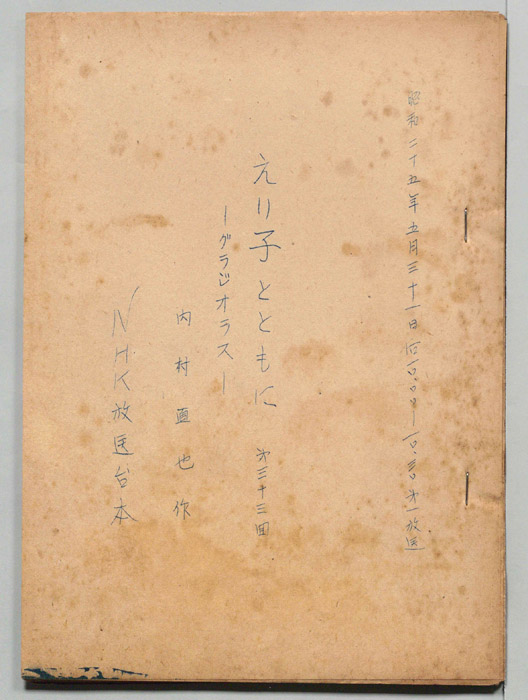 昭和二十五年五月三十一日㈬一〇.〇〇―一〇.三〇第一放送
えり子とともに 第三十三回
―グラジオラス―
内村直也作
NHK放送台本